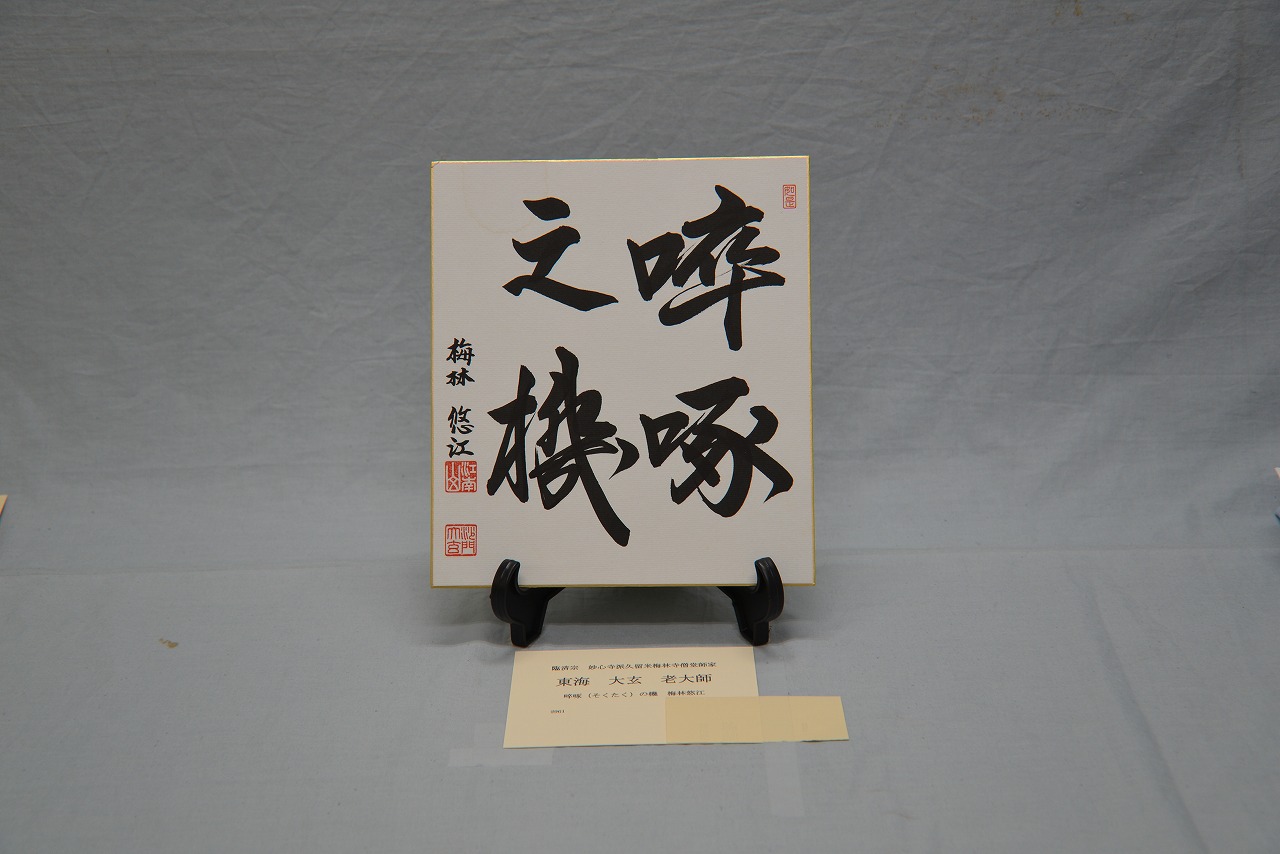 啐啄
之機
梅林 悠江
江南
沙門
大玄
臨済宗 妙心寺派久留米梅林寺僧堂師家
東海 大玄 老大師
啐啄（そくたく）の機 梅林悠江